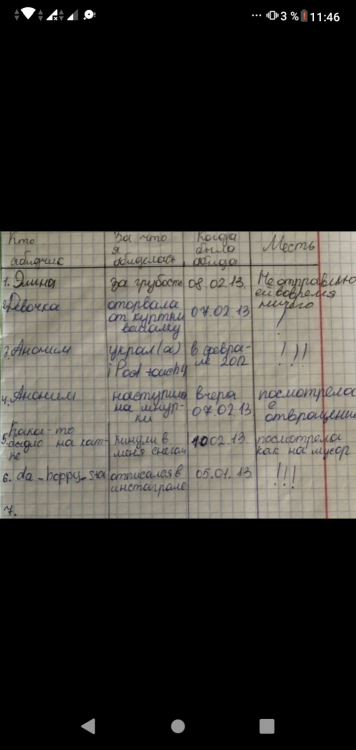 3 % 11:46
Кто обидчик За что я обиделась Когда была обида Месть
1. Элина за грубость 08.02.13. Не отправлю ей вовремя ничего
2. Девочка оторвала от куртки 07.02.13 !
3. Аноним украл(а) iPod в феврале 2012 !!!
4. Аноним наступили на шнурки вчера 07.02.13 посмотрела с отвращением
5. Какая-то на катке кинули в меня снегом 10.02.13. посмотрела как на мусор
6. da_happy_ отписался в инстаграме 05.01.13 !!!
7.